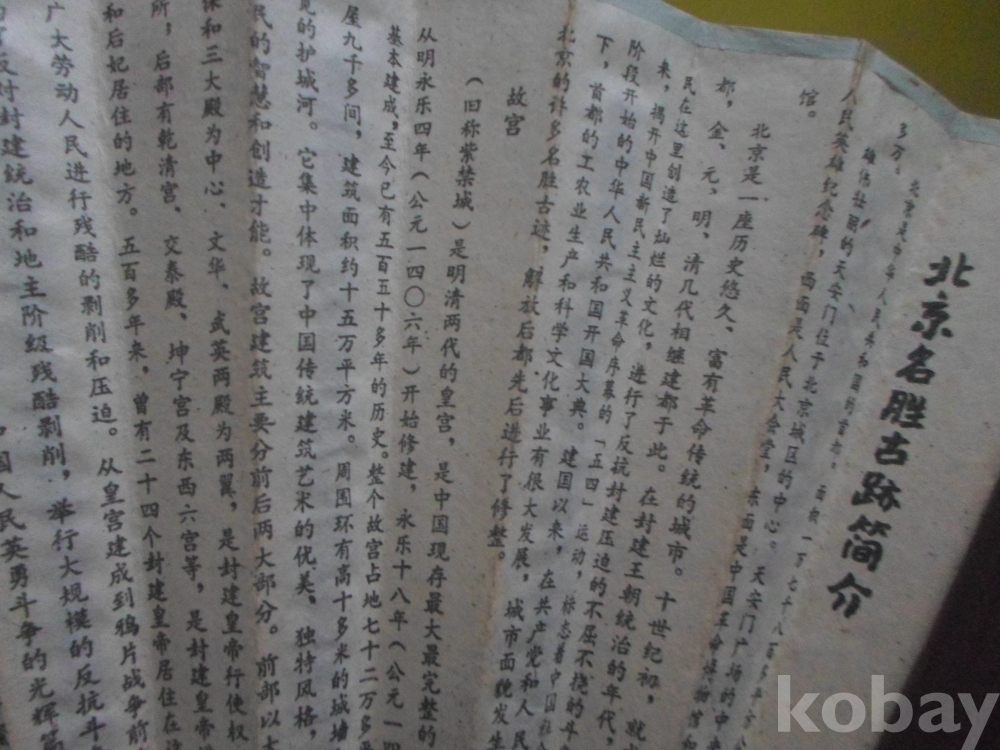 北京名胜古跡简介
北京是中华人民共和国的首都。面积一万七千八百多平方
多万。
雄伟壮丽的天安门位于北京城区的中心。天安门广场的中央
人民英雄纪念碑，西面是人民大会堂，东面是中国革命博物馆和
馆。
北京是一座历史悠久、富有革命传统的城市。十世纪初，就
都，金、元、明、清几代相继建都于此。在封建王朝统治的年代，
民在这里创造了灿烂的文化，进行了反抗封建压迫的不屈不挠的斗
来，揭开中国新民主主义革命序幕的「五四」运动，标志着中国社
阶段开始的中华人民共和国开国大典。建国以来，在共产党和人
下，首都的工农业生产和科学文化事业有很大发展，城市面貌发生
北京的许多名胜古迹，解放后都先后进行了修整。
故宫
（旧称紫禁城）是明清两代的皇宫，是中国现存最大最完整的
从明永乐四年（公元一四〇六年）开始修建，永乐十八年（公元一四
基本建成，至今已有五百五十多年的历史。整个故宫占地七十二万多
屋九千多间，建筑面积约十五万平方米。周围环有高十多米的城墙
宽的护城河。它集中体现了中国传统建筑艺术的优美、独特风格，
民的智慧和创造才能。故宫建筑主要分前后两大部分。前部以太
保和三大殿为中心、文华、武英两殿为两翼，是封建皇帝行使权
所，后部有乾清宫、交泰殿、坤宁宫及东西六宫等，是封建皇帝
和后妃居住的地方。五百多年来，曾有二十四个封建皇帝居住在这
广大劳动人民进行残酷的剥削和压迫。从皇宫建成到鸦片战争前
反对封建统治和地主阶级残酷剥削，举行大规模的反抗斗
国人民英勇斗争的光辉篇
kobay